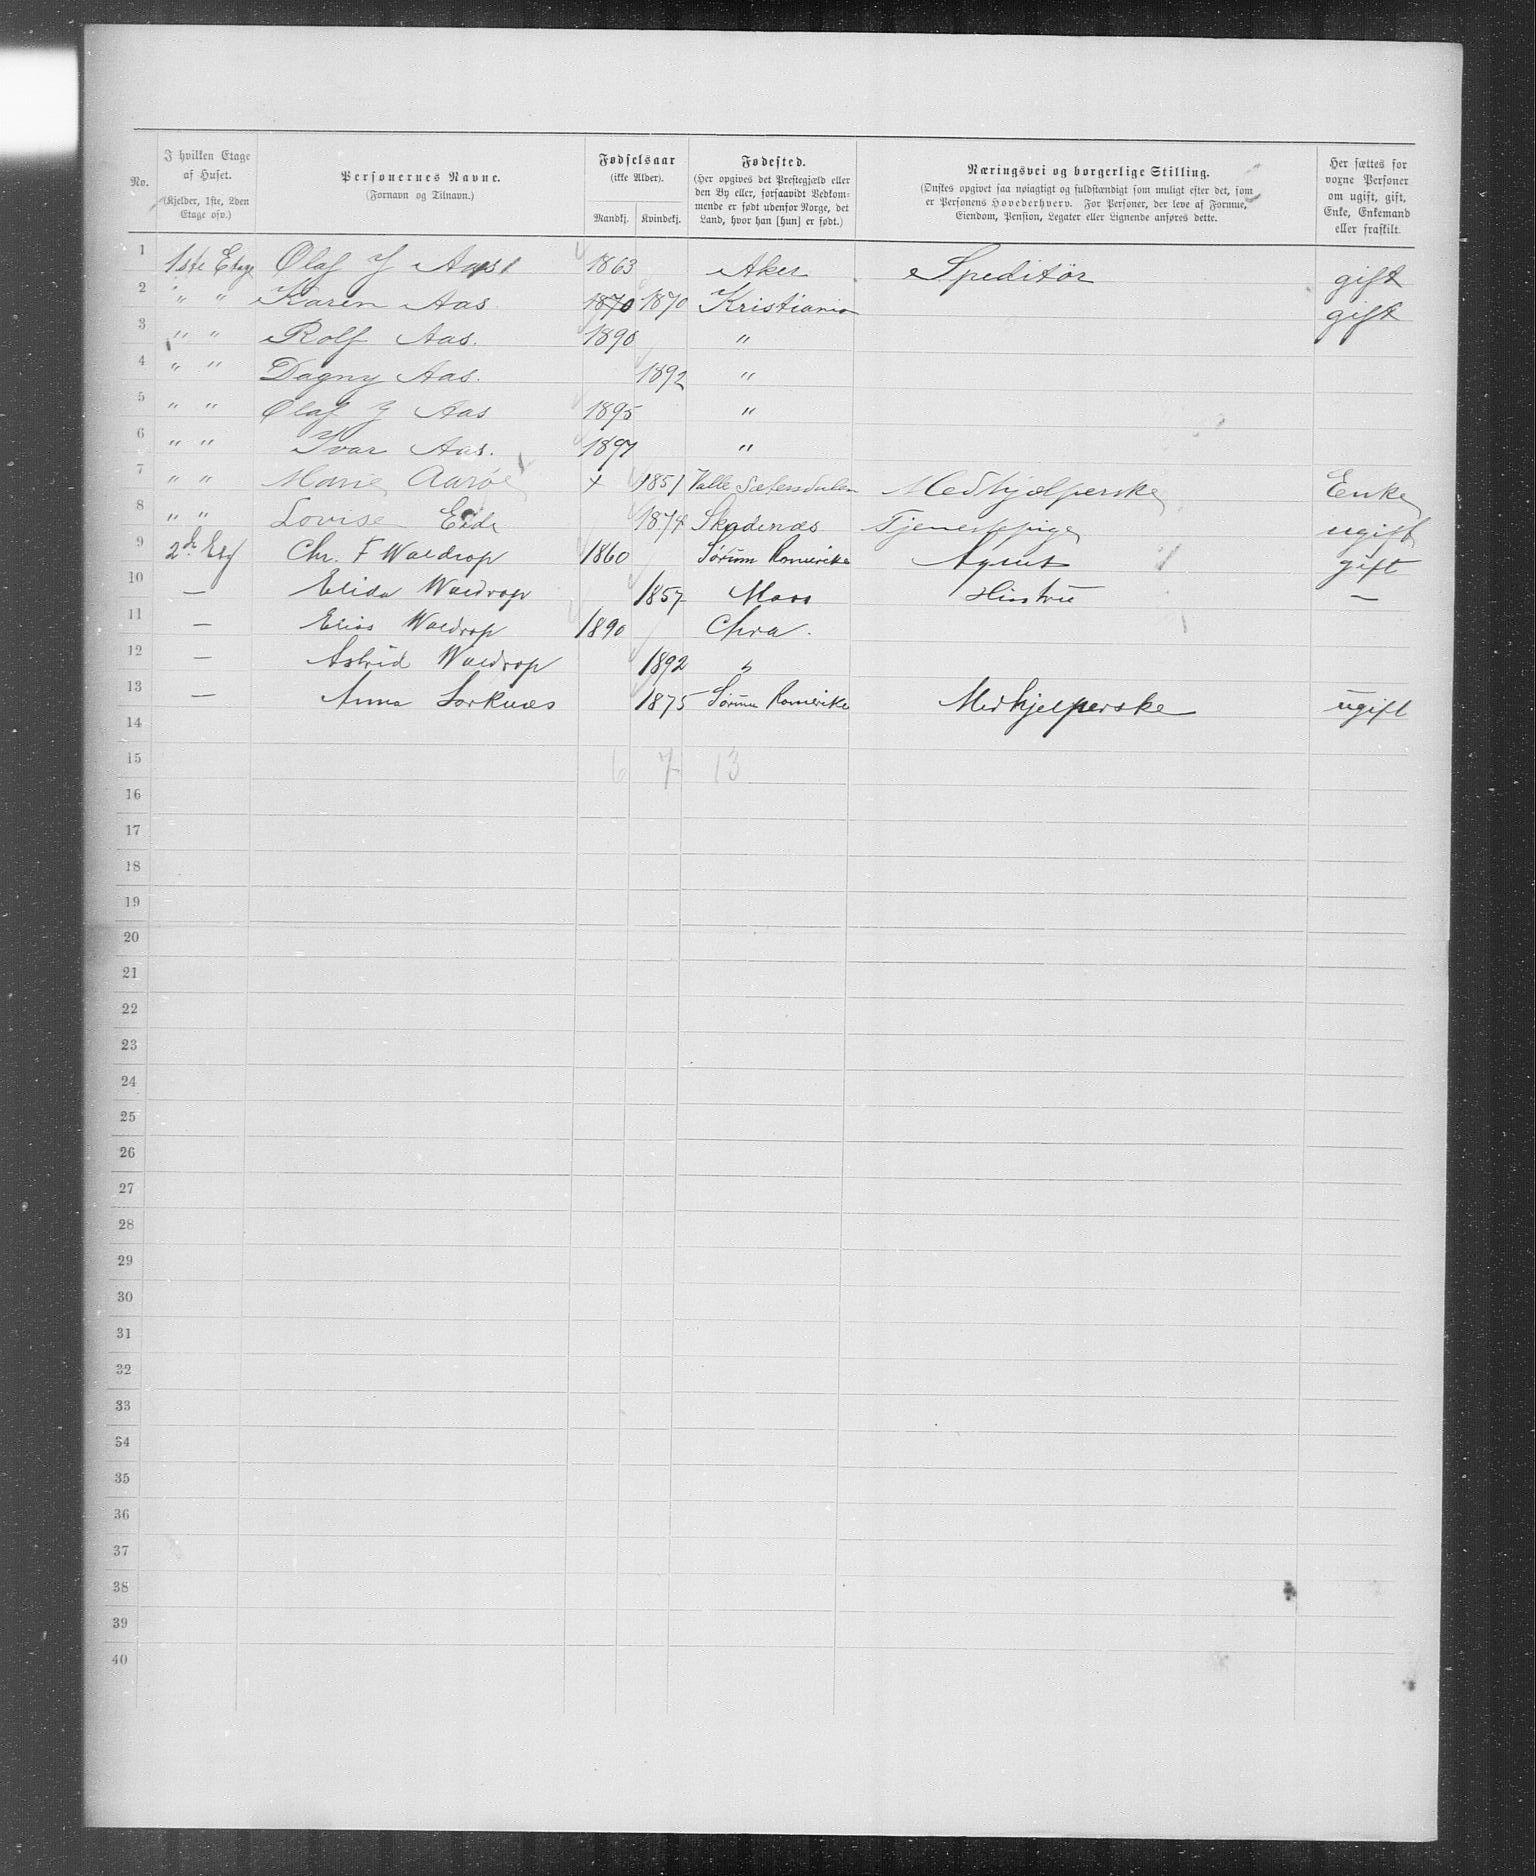 No. | I hvilken Etage af Huset. (Kjelder, 1ste, 2den Etage osv.) | Personernes Navne. (Fornavn og Tilnavn.) | Fødselsaar (ikke Alder). Mandkj. | Kvindekj. | Fødested. (Her opgives det Prestegjæld eller den By eller, forsaavidt Vedkommende er født udenfor Norge, det Land, hvor han [hun] er født.) | Næringsvei og borgerlige Stilling. (Ønskes opgivet saa nøiagtigt og fuldstændigt som muligt efter det, som er Personens Hovederhverv. For Personer, der leve af Formue, Eiendom, Pension, Legater eller Lignende anføres dette. | Her sættes for voxne Personer om ugift, gift, Enke, Enkemand eller fraskilt.
1 1ste Etage Olaf J Aas 1863 Aker Speditör gift
2 " " Karen Aas 1870 1870 Kristiania gift
3 " " Rolf Aas. 1890 "
4 " " Dagny Aas. 1892 "
5 " " Olaf J Aas 1895 "
6 " " Ivar Aas. 1897 "
7 " " Marie Aarøe + 1851 Valle Sætersdalen Medhjælperske Enke
8 " " Lovise Eide 1874 Skudenæs Tjenestepige ugift
9 2d Etg Chr. F Waldrop 1860 Sørum Romerike Agent gift
10 — Elida Waldrop 1857 Moss Hustru —
11 — Elias Waldrop 1890 Chra.
12 — Astrid Waldrop 1892 "
13 — Anna Sorknæs 1875 Sørum Romerike Medhjelperske ugift
14
15 6 7 13
16
17
18
19
20
21
22
23
24
25
26
27
28
29
30
31
32
33
34
35
36
37
38
39
40